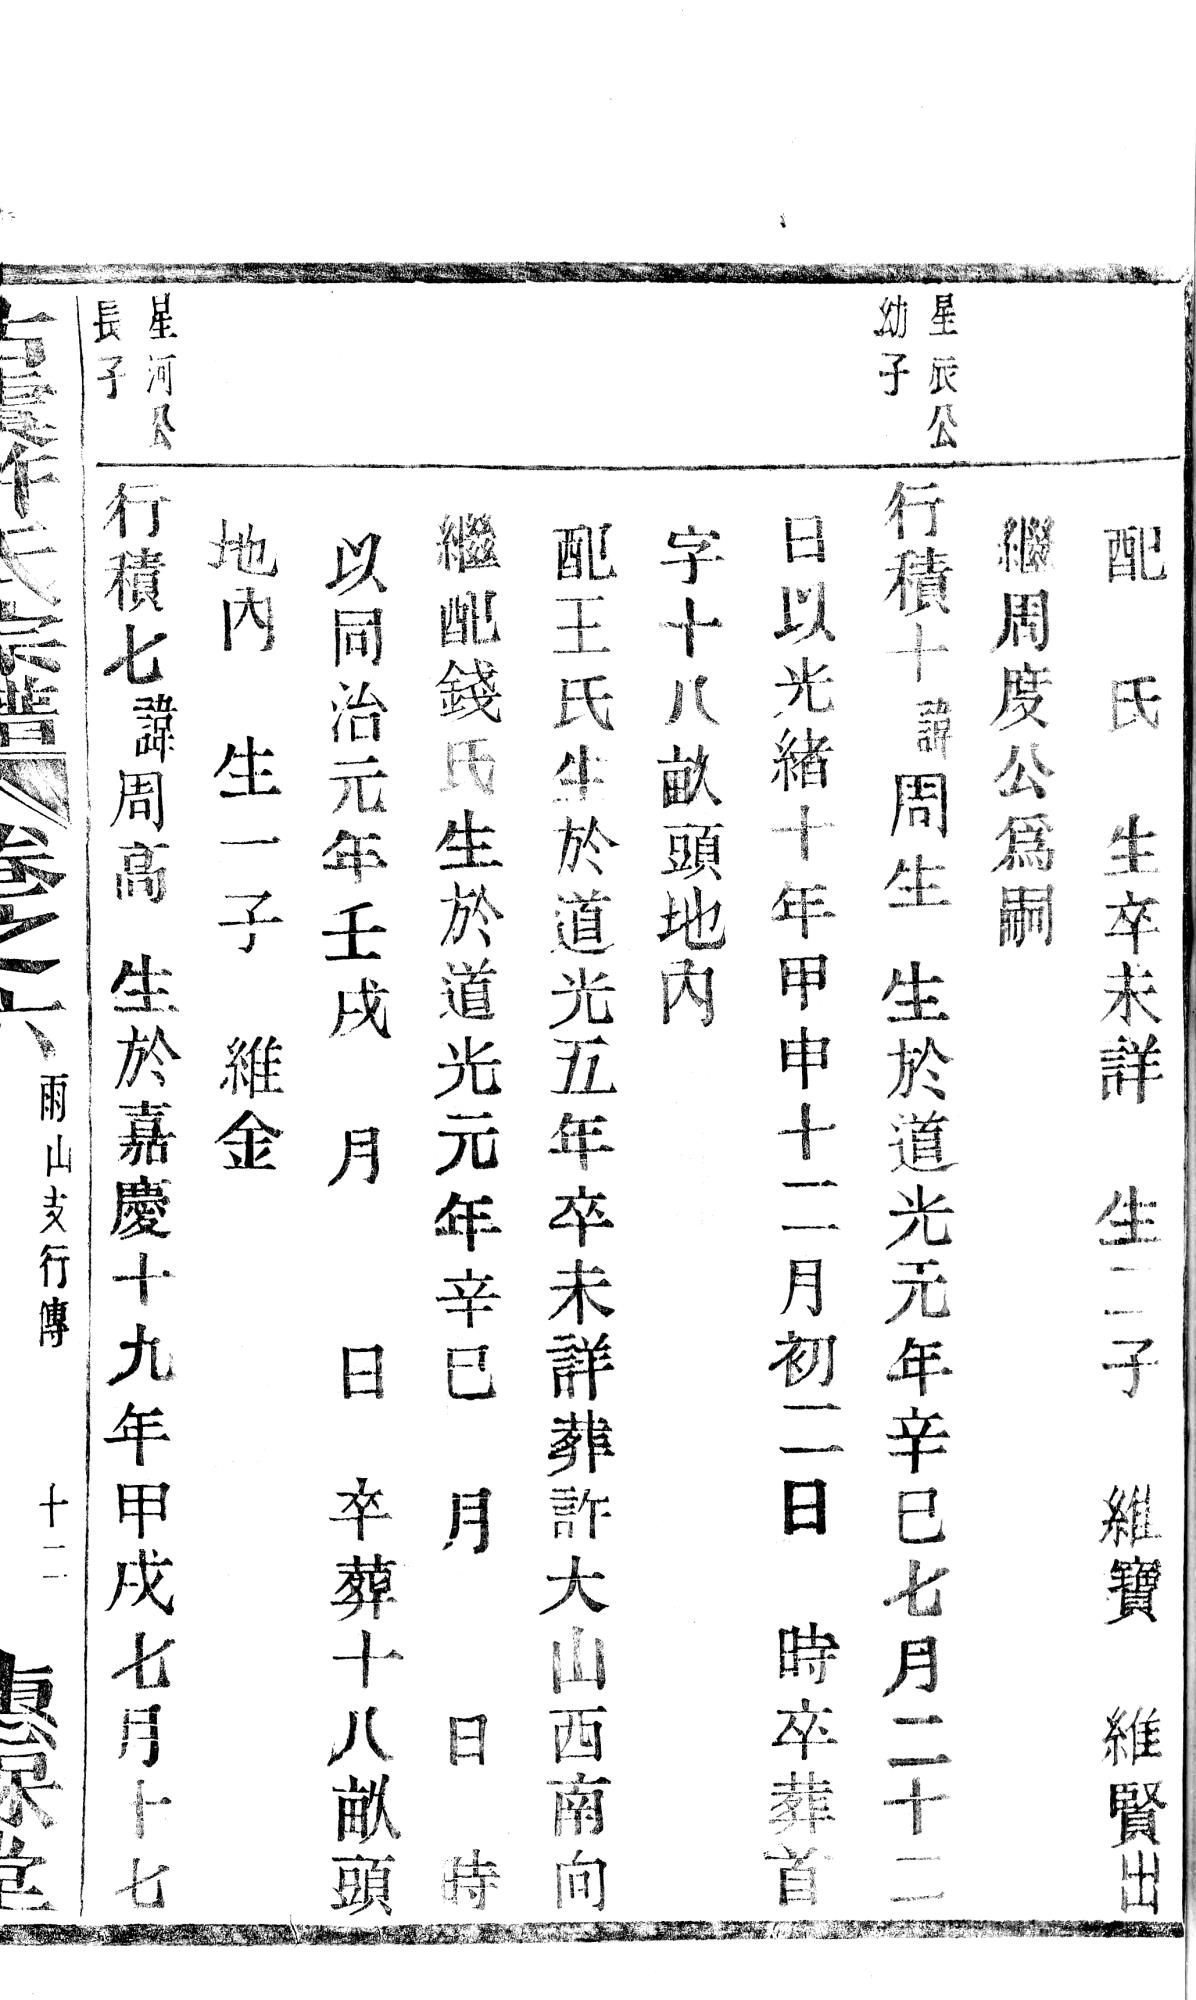 配　氏　生卒未詳　生二子　維寶　維賢出
繼周度公爲嗣
星辰公
幼子
行積十諱周生　生於道光元年辛巳七月二十二
日以光緒十年甲申十二月初二日　時卒葬首
字十八畝頭地內
配王氏生於道光五年卒未詳葬許大山西南向
繼配錢氏生於道光元年辛巳　月　日　時
以同治元年壬戌　月　日　卒葬十八畝頭
地內　生一子　維金
星河公
長子
行積七諱周高　生於嘉慶十九年甲戌七月十七
氏宗譜 卷之六 雨山支行傳 十二 堂